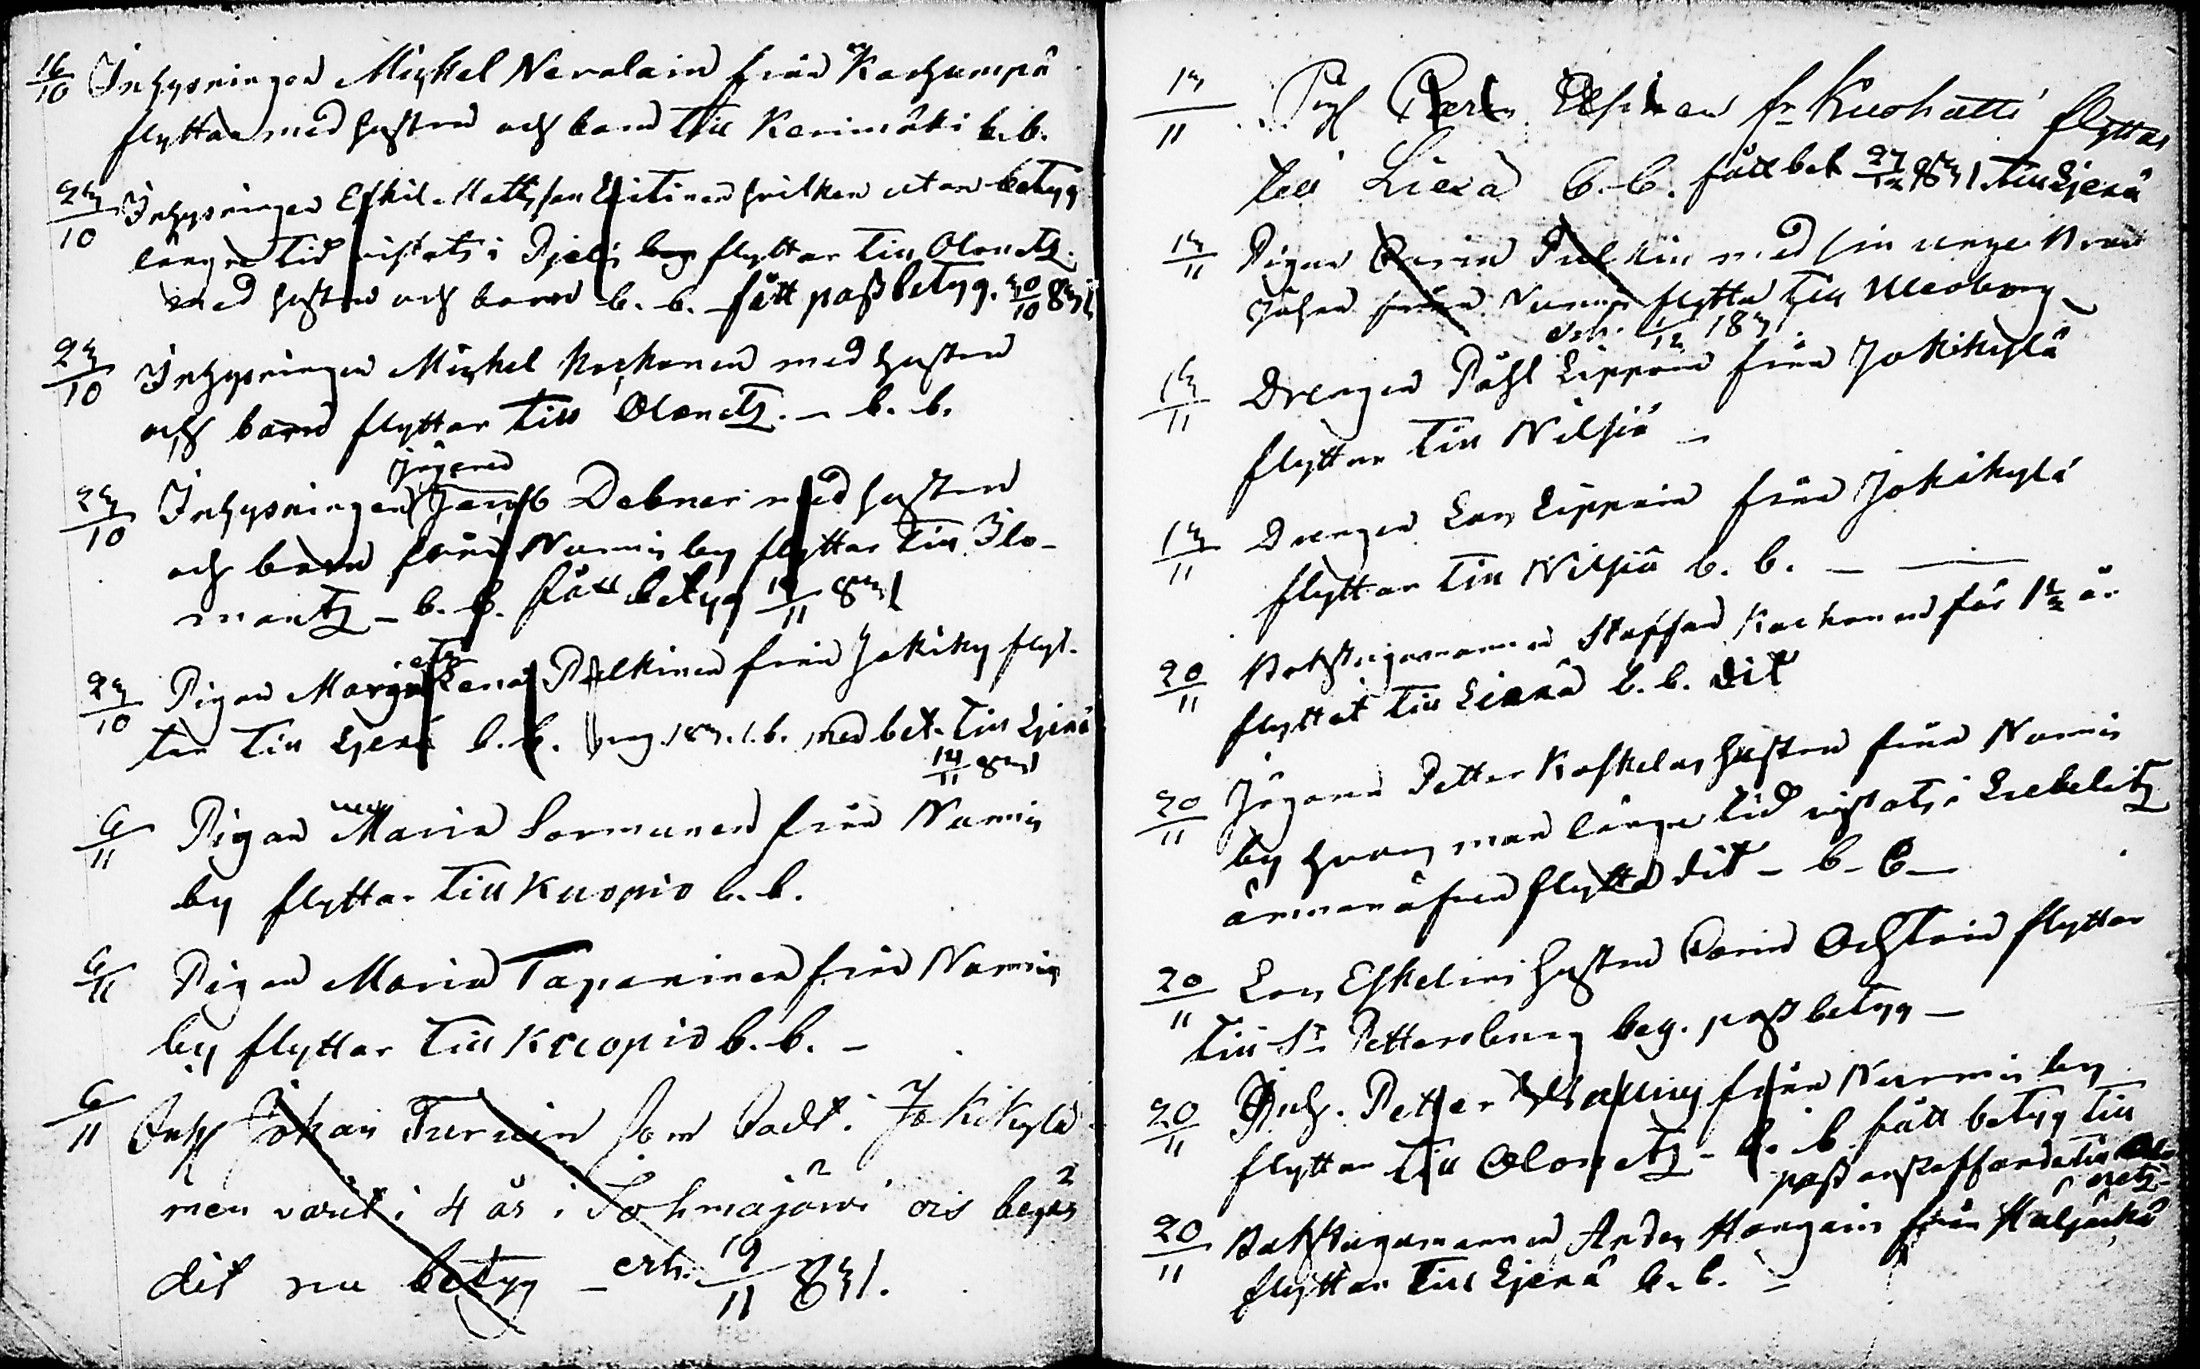 16/10 Inhysningen Michel Nevalain från Karhunpä
flyttar med hustru och barn till Kerimäki b.b.
23/10 Inhysningen Eskil Mattsson hvilken utan betyg
längre tid vistats i Pjelis flyttar till Olonetz
med hustru och barn b. b. fått passbetyg. 30/10 831
23/10 Inhysningen Michel med hustru
och barn flyttar till Olonetz. – b. b.
jägaren
23/10 Inhysningen Jacob Debner med hustru
och barn från Nurmis by flyttar till Ilo-
mantz – b. b. fått betyg 11 831
23/10 Pigan Marg. Lena Pulkinen från Jokiky flyt-
tar till Ljexa b. b. med bet. till Ljexa
14/11 831
6/11 Pigan Maria Sormunen från Nurmis
by flyttar till Kuopio b. b.
6/11 Pigan Maria Tapaninen från Nurmis
by flyttar till Kuopio b. b. –
6/11 Inh Johan Turuin som född i Jokikylä
men varit i 4 år i Tohmajärvi och begär
dit nu betyg – erh. 19/11 831.
13/11 Pig från Kuohatti flyttar
till Liexa b. b. fått bet 27/12 831 till Ljexa
13/11 Pigan Carin Pulkin med sin unge
Johan från Nurmis flytta till Uleoborg
erh. 1/12 183
13/11 Drengen Påhl Lippoin från Jokikylä
flyttar till Nilsiä –
13/11 Drengen Lars Lippoin från Jokikylä
flyttar till Nilsiä b. b. –
20/11 Backstugumannen Staffan Kachonen för 1½ år
flyttat till Liexa b. b. dit
20/11 Jägaren Petter Koskelas hustru från Nurmis
by hvars man längre tid vistats i Liebelitz
ärnar äfven flytta dit – b. b. –
20/11 Lars Eskelins hustru Carin flyttar
till S:t Pettersburg beg. passbetyg –
20/11 Inh. Petter från Nurmis by
flyttar till Olonetz – b. b. fått betyg till
pass anskaffande till Olo
netz
20/11 Backstugumannen Anders från
flyttar till Ljexa b. b. –